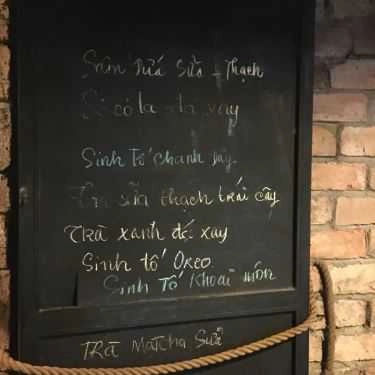 Sâm dứa sữa - Thạch
Sôcôla đá xay
Sinh Tố chanh dây
Trà sữa thạch trái cây
TRà xanh đá xay
Sinh tố Oreo
Sinh Tố Khoai môn
TRà MaTcha Sữa